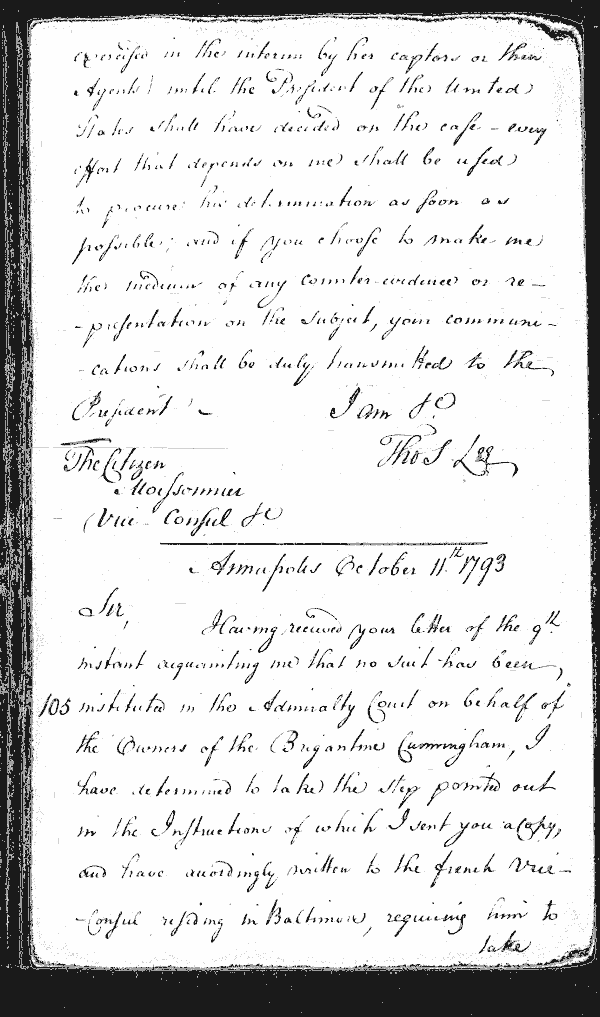 exercised in the interim by her captors or their
Agents) until the President of the United
States shall have decided on the case – every
effort that depends on me shall be used
to procure his determination as soon as
possible; and if you choose to make me
the medium of any counter-evidence or re-
-presentation on the subject, your communi-
-cations shall be duly transmitted to the
President –
I am &c
Tho S Lee
The Citizen
Moissonnier
Vice Consul &c
Annapolis October 11th 1793
Sir,
Having received your letter of the 9th
instant acquainting me that no suit has been
105 instituted in the Admiralty Court on behalf of
the Owners of the Brigantine Cunningham, I
have determined to take the step pointed out
in the Instructions of which I sent you a Copy,
and have accordingly written to the french Vice-
-Consul residing in Baltimore, requiring him to
take